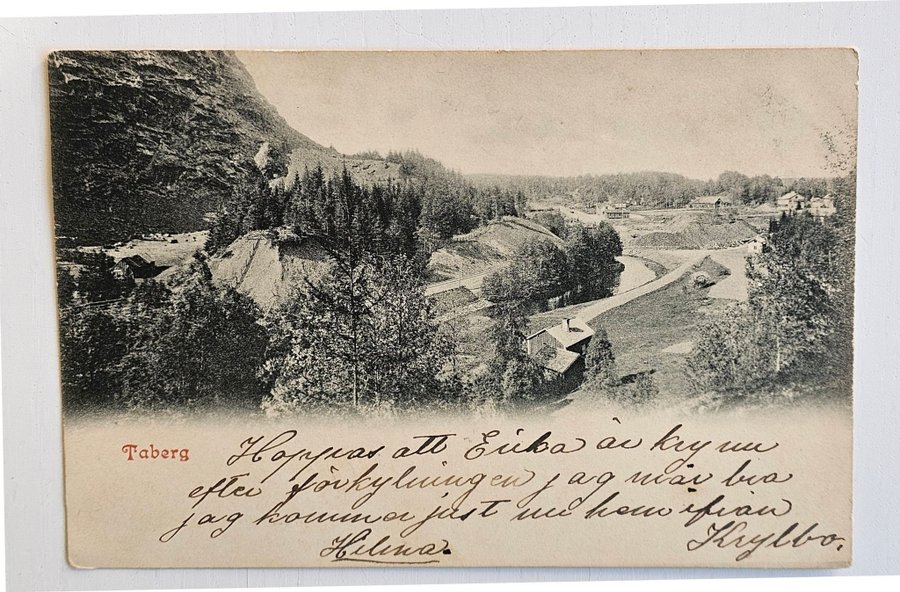 Taberg
Hoppas att Erika är kry nu
efter förkylningen jag mår bra
jag kommer just nu hem ifrån
Krylbo.
Helena.